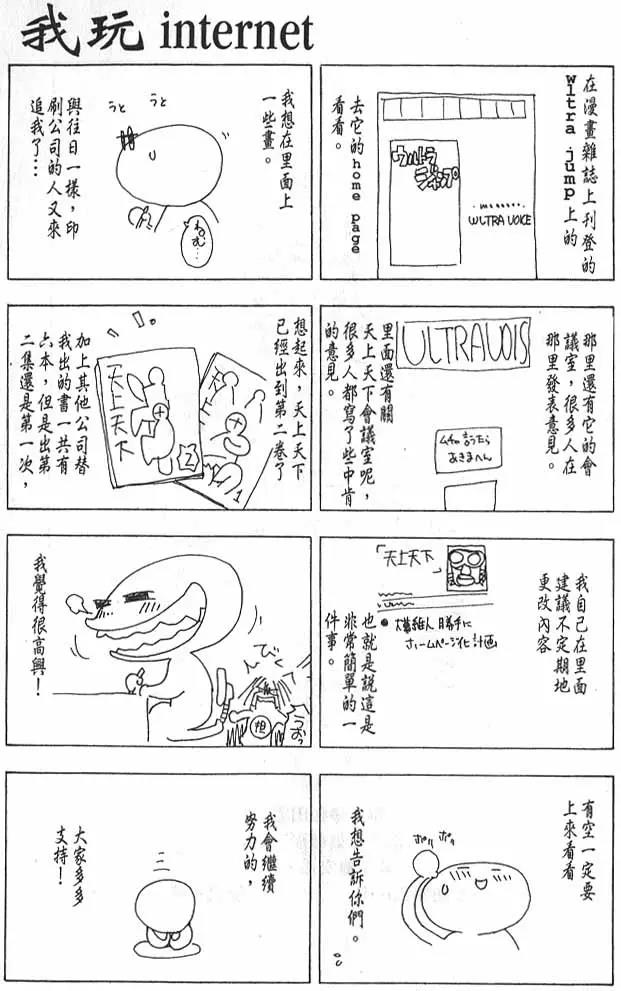 我玩 internet
在漫畫雜誌上刊登的
wltra jump上的
去它的home page
看看。
ウルトラ
ジャンプ
WLTRA VOICE
那里還有它的會
議室，很多人在
那里發表意見。
ULTRAVOIS
ムチャ言うたら
あきまへん
里面還有關
天上天下會議室呢，
很多人都寫了些中肯
的意見。
我自己在里面
建議不定期地
更改內容
「天上天下」
大暮維人 勝手に
ホームページ化計画
也就是說這是
非常簡單的一
件事。
有空一定要
上來看看
ポリ ポリ
我想告訴你們。
我想在里面上
一些畫。
うと うと
與往日一樣，印
刷公司的人又來
追我了…
ねむ…
想起來，天上天下
已經出到第二卷了
天上天下
2
1
加上其他公司替
我出的書一共有
六本，但是出第
二集還是第一次，
我覺得很高興！
んでく
担
うおっ
我會繼續
努力的，
大家多多
支持！